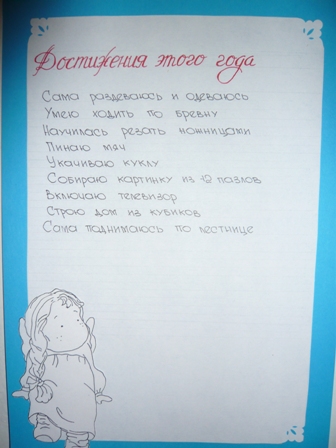 Достижения этого года
Сама раздеваюсь и одеваюсь
Умею ходить по бревну
Научилась резать ножницами
Пинаю мяч
Укачиваю куклу
Собираю картинку из 12 пазлов
Включаю телевизор
Строю дом из кубиков
Сама поднимаюсь по лестнице